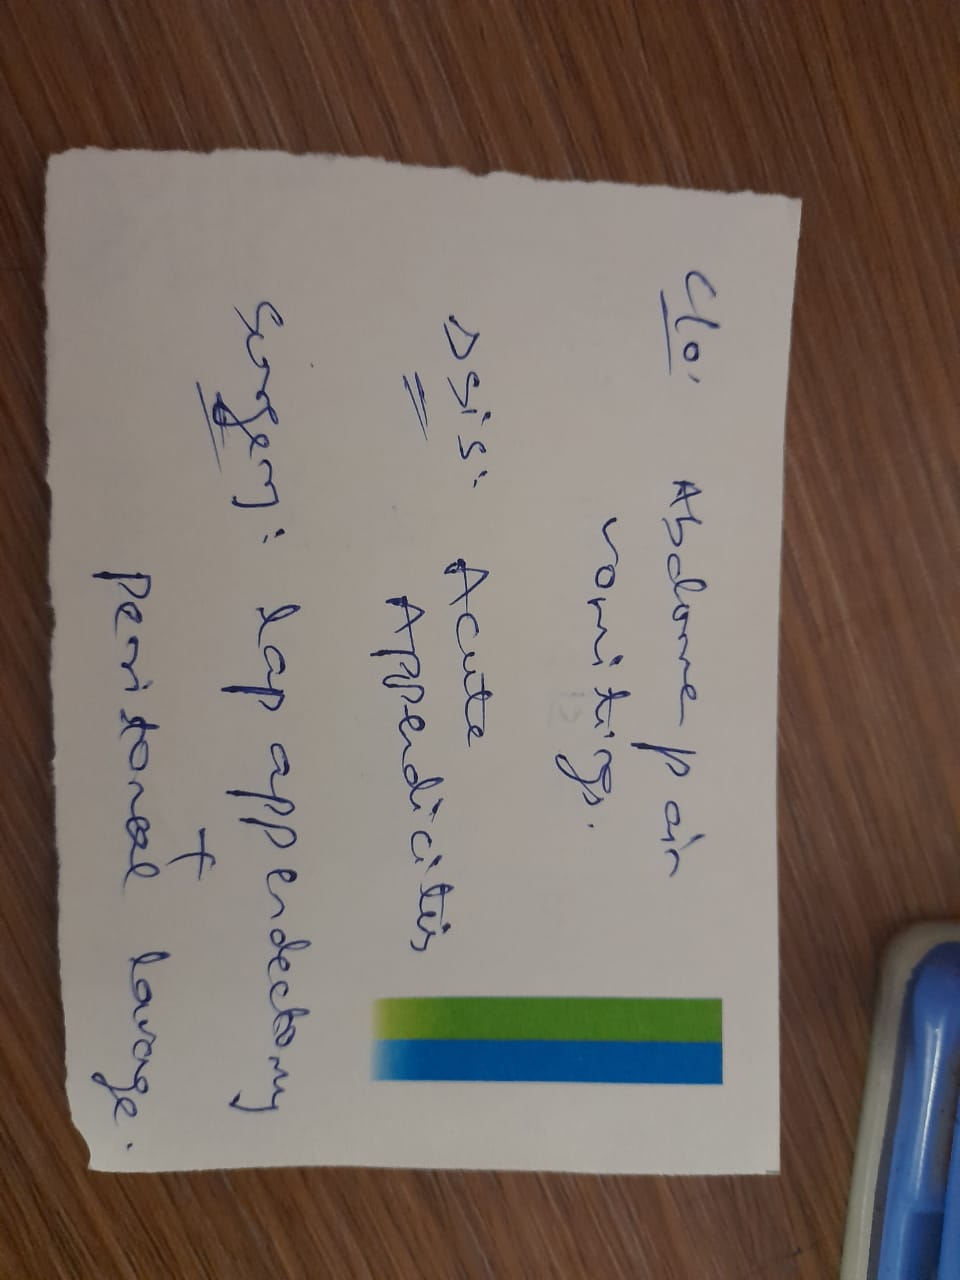 C/o. Abdome pain
vomitigs.
Dsis: Acute
Appendicitis
Surgery: lap appendectomy
+
peritoneal lavage.